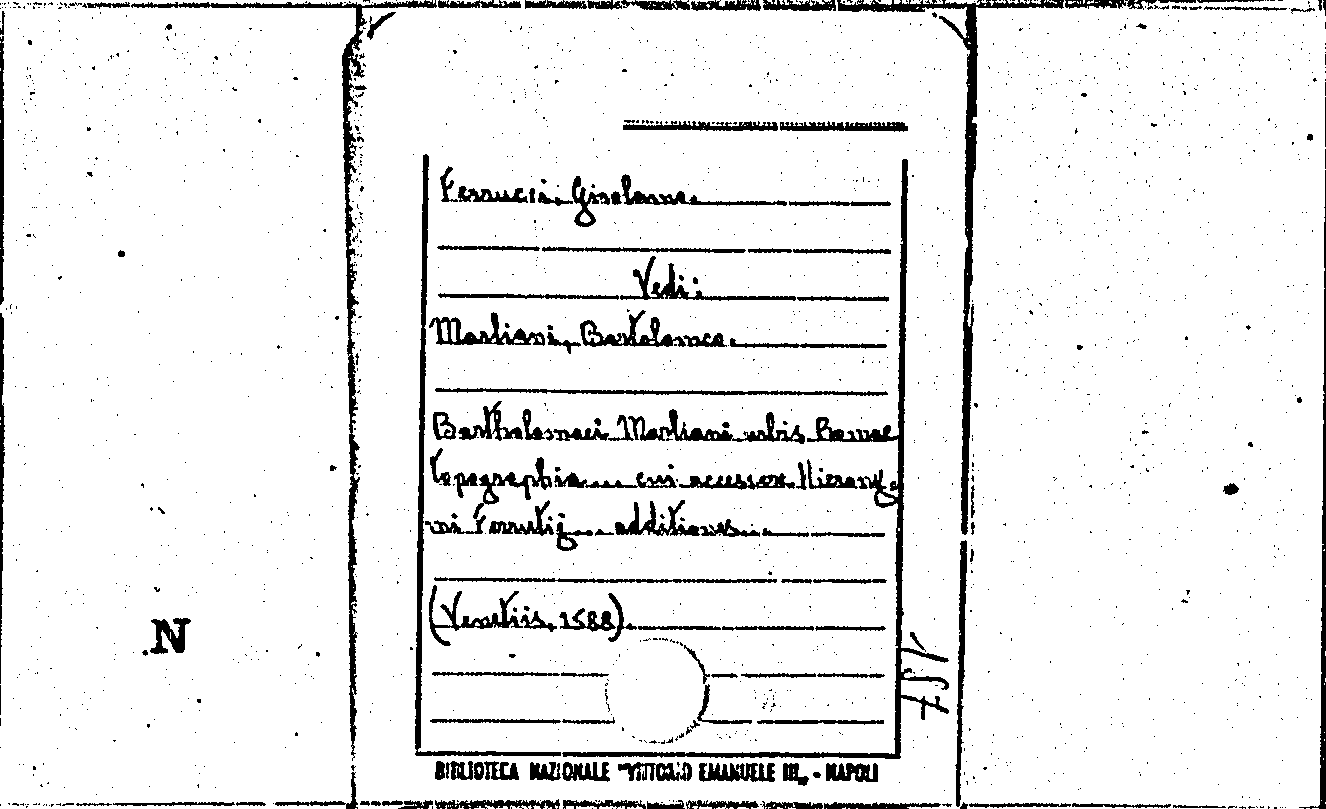 Ferrucci, Girolamo.
Vedi:
Marliani, Bartolomeo.
Bartholomaei Marliani urbis Romae
topographia.... cui accessere Hierony-
mi Ferrutij... additiones...
(Venetiis, 1588).
157
N
BIBLIOTECA NAZIONALE "VITTORIO EMANUELE III„ - NAPOLI